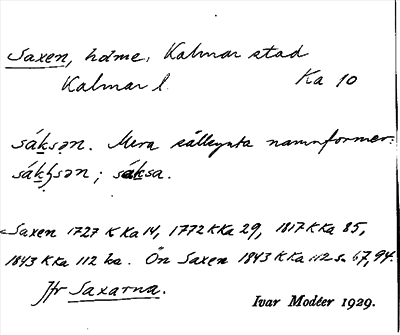 Saxen, holme, Kalmar stad
Kalmar l. Ka 10
sáksən. Mera sällsynta namnformer:
sákʃsən; sáksa.
Saxen 1727 K Ka 14, 1772 K Ka 29, 1817 K Ka 85,
1843 K Ka 112 ka. Ön Saxen 1843 K Ka 112 s. 67, 94.
Jfr Saxarna.
Ivar Modéer 1929.